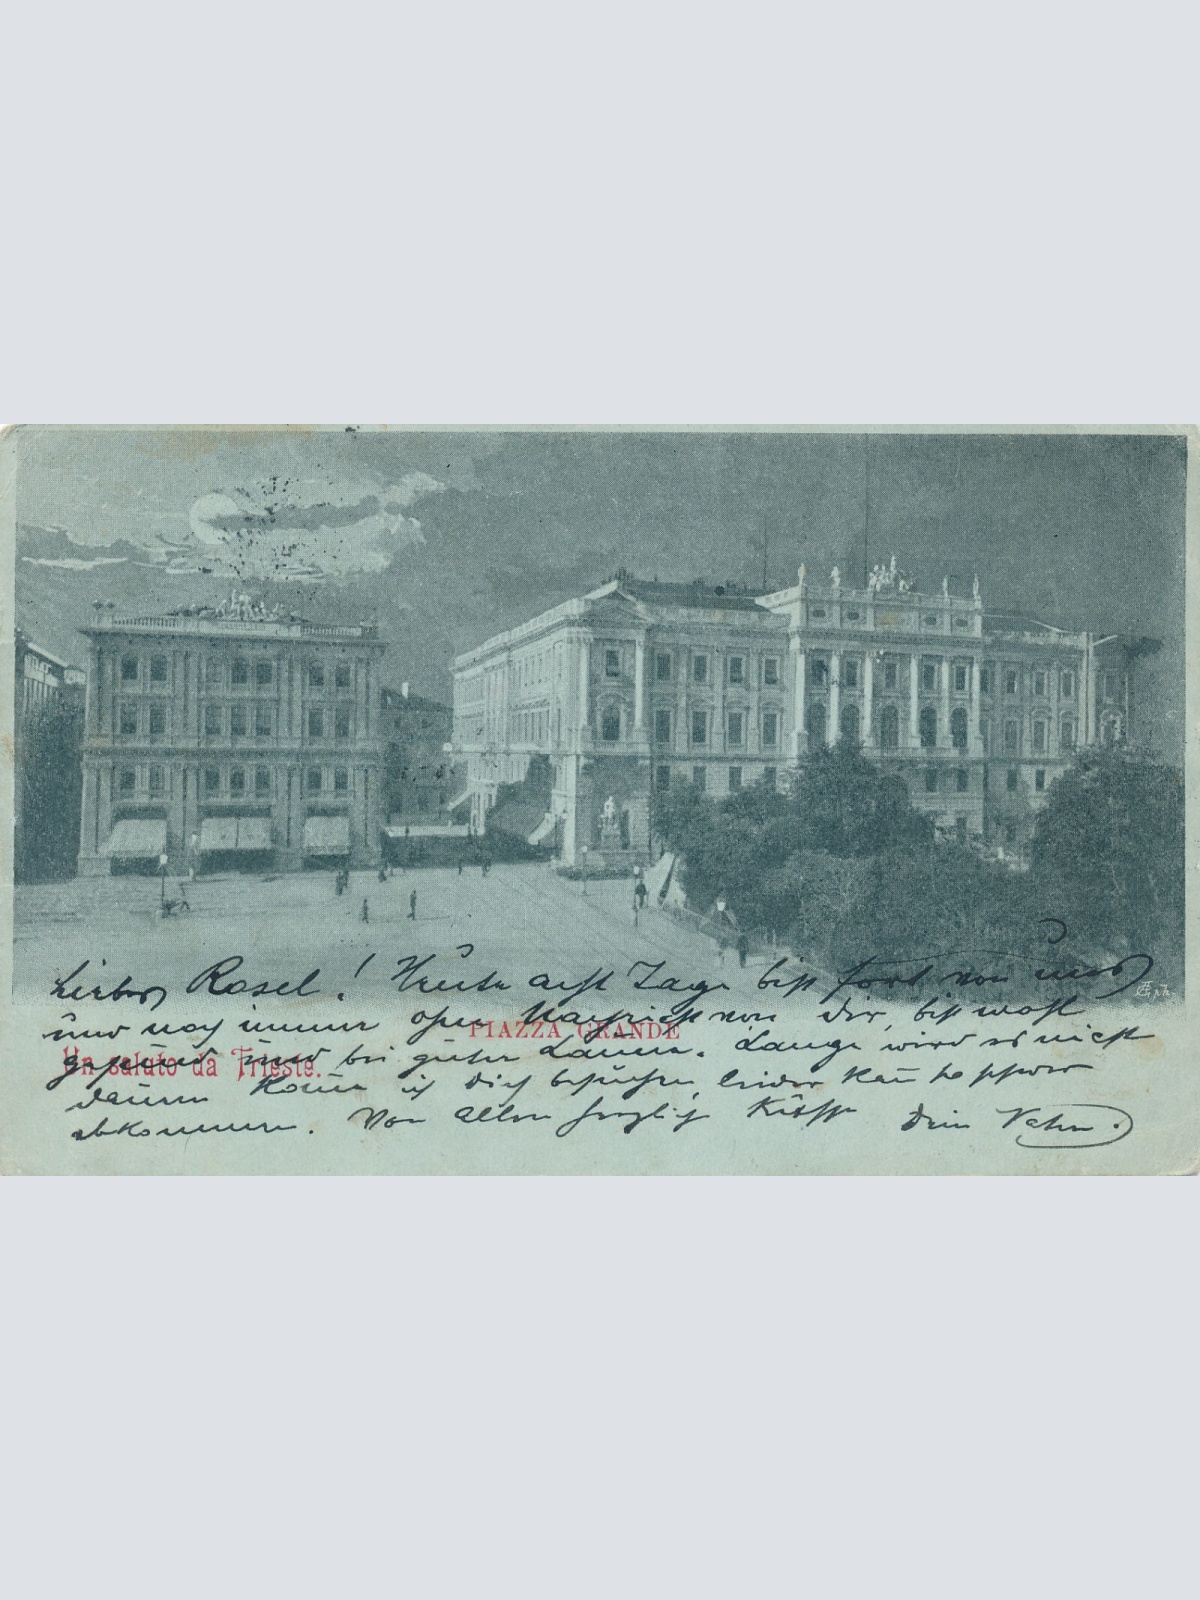 Liebes Rosel! Heute acht Tage bist fort von uns
und noch immer ohne Nachricht von dir, bist wohl
PIAZZA GRANDE
gesund und bei guter Laune. Lange wird es nicht
Un saluto da Trieste.
dauern kann ich dich besuchen, leider kan schwer
abkommen. Von allen herzlich Küsse Dein Vater.